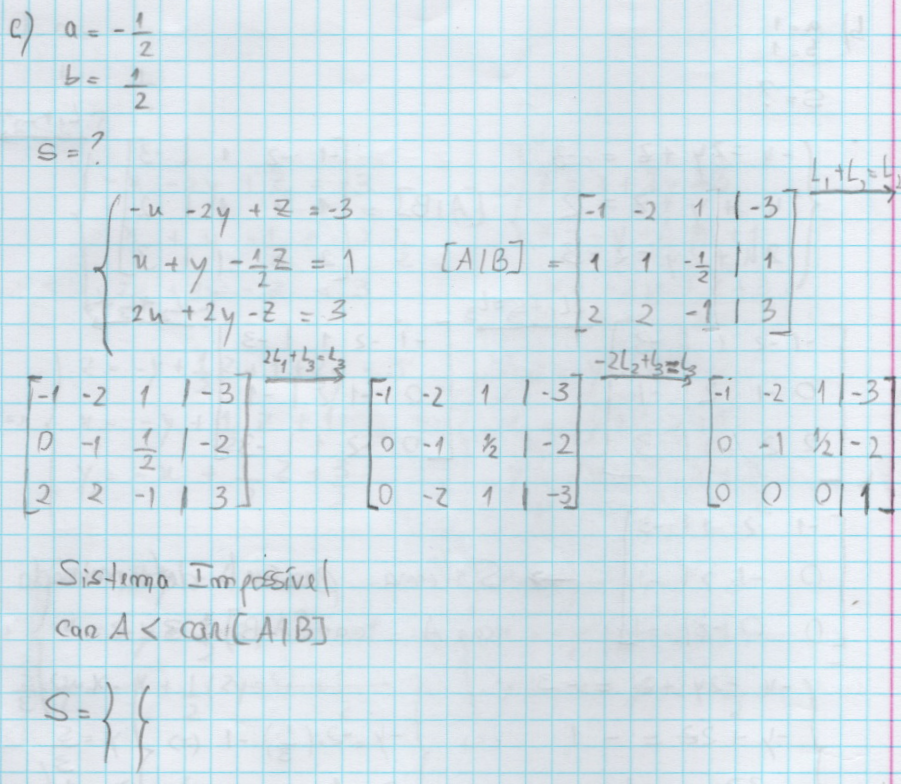 c) a = -1/2
b = 1/2
S = ?
{ -x -2y + z = -3
x + y - 1/2 z = 1
2x + 2y - z = 3
[A|B] = [ -1 -2 1 | -3
1 1 -1/2 | 1
2 2 -1 | 3 ] L₁+L₂=L₂ →
[ -1 -2 1 | -3
0 -1 1/2 | -2
2 2 -1 | 3 ] 2L₁+L₃=L₃ →
[ -1 -2 1 | -3
0 -1 1/2 | -2
0 -2 1 | -3 ] -2L₂+L₃=L₃ →
[ -1 -2 1 | -3
0 -1 1/2 | -2
0 0 0 | 1 ]
Sistema Impossível
car A < car [A|B]
S = } {